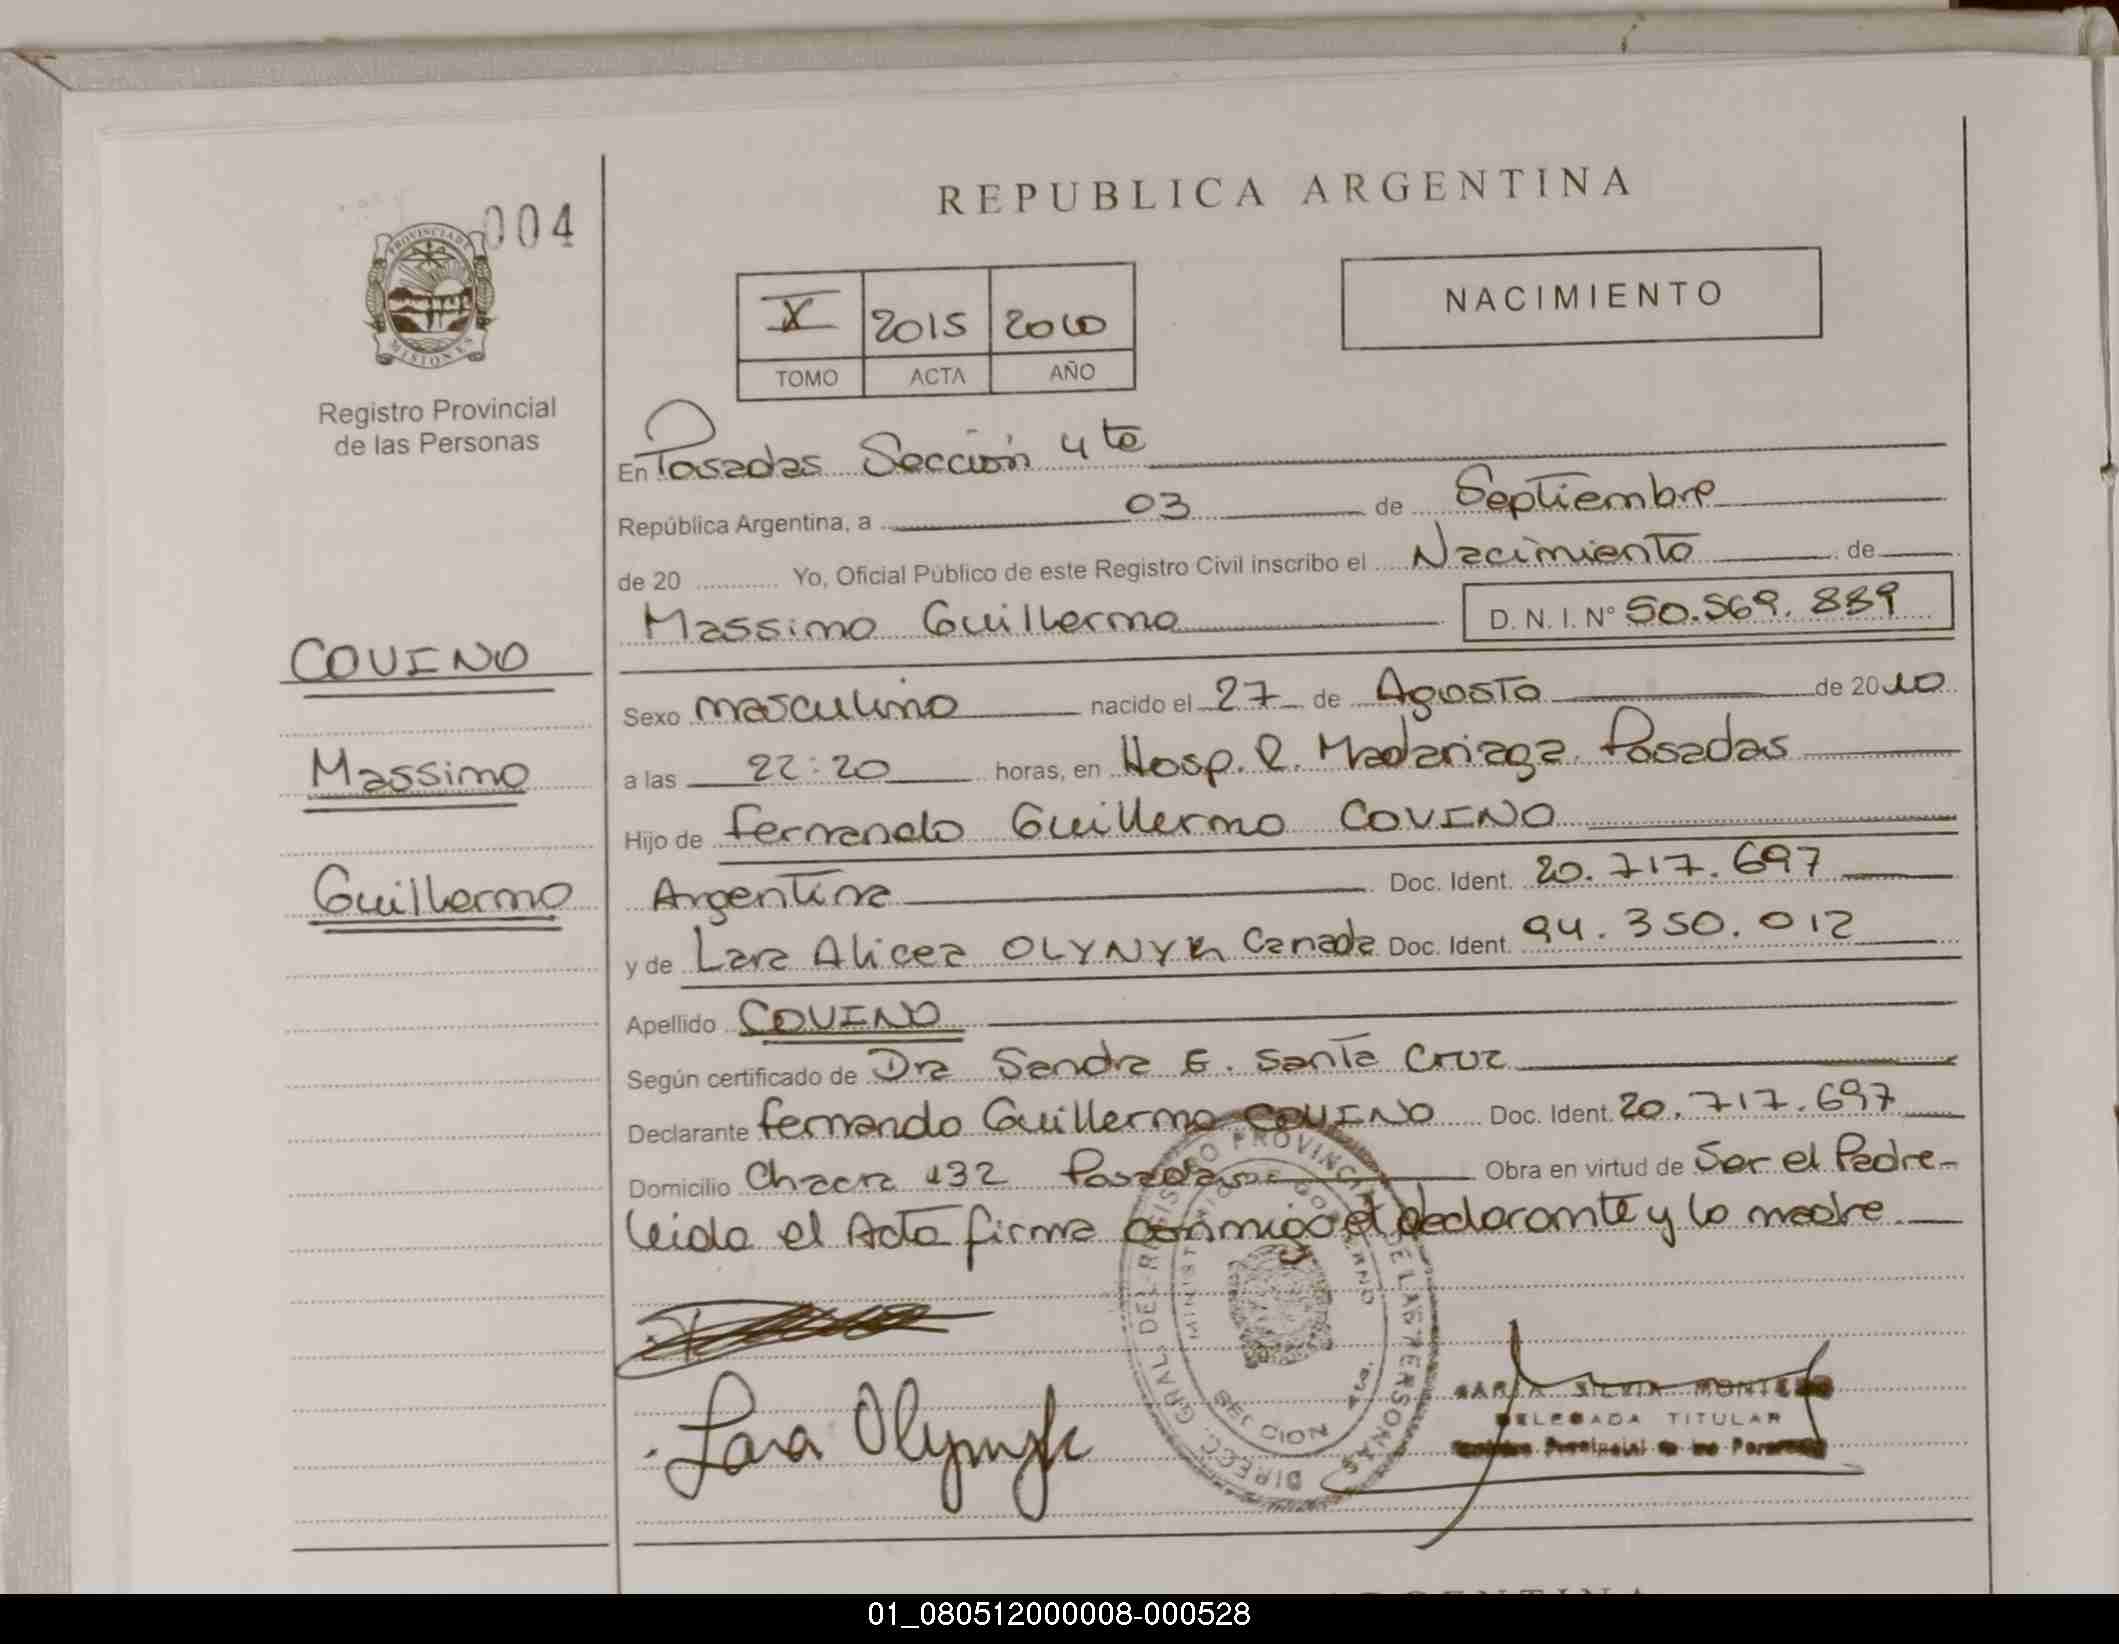 REPUBLICA ARGENTINA
004
PROVINCIA DE MISIONES
Registro Provincial
de las Personas
NACIMIENTO
X 2015 2010
TOMO ACTA AÑO
En Posadas Sección 4ta
República Argentina, a 03 de Septiembre
de 20 Yo, Oficial Público de este Registro Civil inscribo el Nacimiento de
Massimo Guillermo D. N. I. N° 50.569.889
COVINO
Massimo
Guillermo
Sexo masculino nacido el 27 de Agosto de 2010
a las 22:20 horas, en Hosp. R. Madariaga. Posadas
Hijo de Fernando Guillermo COVINO
Argentina Doc. Ident. 20.717.697
y de Lara Alicea OLYNYK Canada Doc. Ident. 94.350.012
Apellido COVINO
Según certificado de Dra Sandra E. Santa Cruz
Declarante Fernando Guillermo COVINO Doc. Ident. 20.717.697
Domicilio Chacra 132 Posadas Obra en virtud de Ser el Padre-
leida el Acta firma conmigo el declarante y la madre
DIREC. GRAL. DEL REGISTRO PROVINCIAL DE LAS PERSONAS
MINISTERIO DE GOBIERNO
SECCION 4ta.
Lara Olynyk
MARIA SILVIA
DELEGADA TITULAR
Provincial de las Personas
01_080512000008-000528